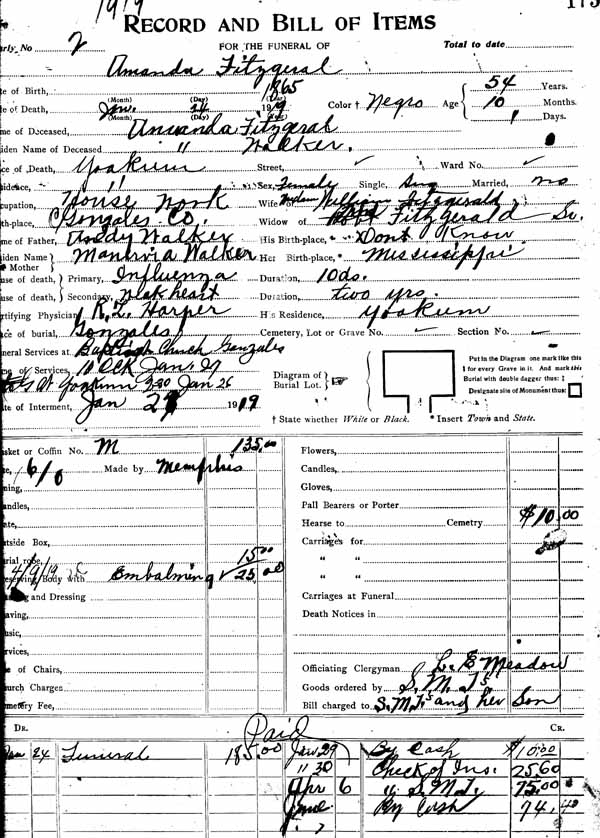 1919
175
RECORD AND BILL OF ITEMS
arly No 2 FOR THE FUNERAL OF Total to date
Amanda Fitzgeral
te of Birth, 1865 54 Years.
(Month) (Day)
te of Death, Jan. 24 1919 Color † Negro Age 10 Months.
(Month) (Day)
1 Days.
me of Deceased, Amanda Fitzgerald
iden Name of Deceased " Walker.
ce of Death, Yoakum Street, Ward No.
idence, " Sex, Female Single, Married, no
upation, House Work Wife William Fitzgerald
th-place, Gonzales Co. Widow of Fitzgerald Sr.
me of Father, Andy Walker His Birth-place, * Don't Know
iden Name of Mother Manervia Walker Her Birth-place, * Mississippi
use of death, Primary, Influenza Duration, 10 ds.
use of death, Secondary, Weak heart Duration, two yrs.
rtifying Physician, R. L. Harper His Residence, Yoakum
ace of burial, Gonzales Cemetery, Lot or Grave No. Section No.
neral Services at Baptist Church Gonzales
me of Services, 10 Clk Jan. 27
at Yoakum 2:30 Jan 26
te of Interment, Jan 27 1919
Diagram of Burial Lot.
Put in the Diagram one mark like this
I for every Grave in it. And mark this
Burial with double dagger thus: ‡
Designate site of Monument thus:
† State whether White or Black. * Insert Town and State.
sket or Coffin No. M 135.00
ze, 6/0 Made by Memphis
ning,
andles,
ate,
utside Box,
rial robe, 15.00
4/9/19
eserving Body with Embalming 25.00
and Dressing
aving,
usic,
rvices,
e of Chairs,
urch Charges
metery Fee,
Flowers,
Candles,
Gloves,
Pall Bearers or Porter
Hearse to Cemetry $10.00
Carriages for
" "
" "
Carriages at Funeral
Death Notices in
Officiating Clergyman L. E. Meadow
Goods ordered by S. M. T's
Bill charged to S. M. T's and her Son
DR. Paid CR.
Jan 24 Funeral 185.00 Jan. 29 By Cash $10.00
" 30 Check of Ins. 25.60
Apr 6 " S. M. T. 75.00
June 7 By Cash 74.40